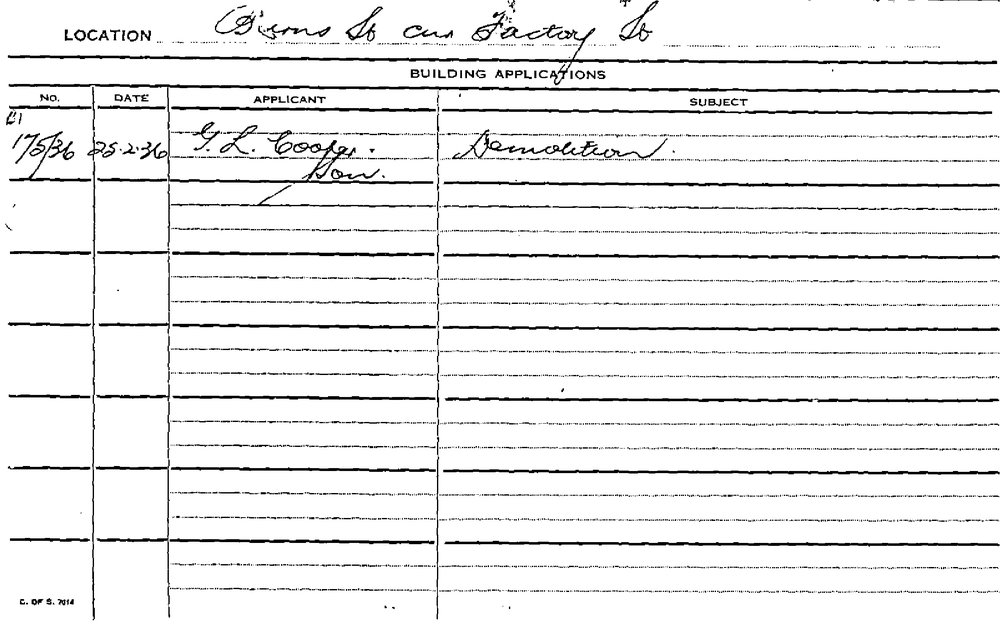 LOCATION Burns St cnr Factory St
BUILDING APPLICATIONS
NO. DATE APPLICANT SUBJECT
175/36 25.2.36 G. L. Cooper. Demolition.
Son.
C. OF S. 7014